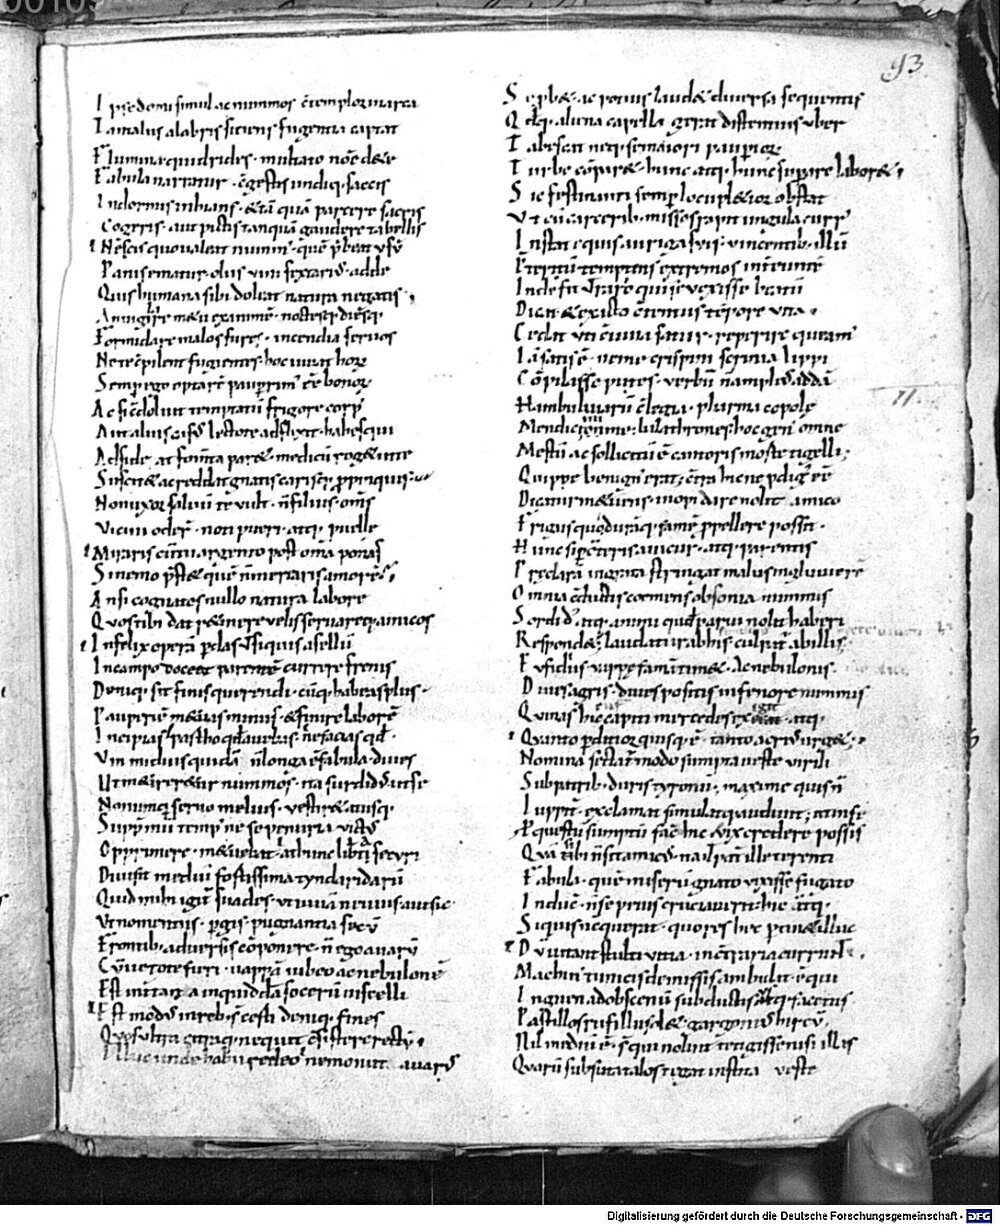 00109
93
Ipse domi simul ac nummos ctēplor in arca
Tantalus a labris sitiens fugientia captat
Flumina quid rides · mutato nōe de te
Fabula narratur · cgestis undiq; saccis
Indormis inhians · & tā quā parcere sacris
Cogeris · aut pictis tanquā gaudere tabellis
Nescis quo ualeat numm' · quē p̄beat usū
Panis ematur · olus · uini sextari' · adde
Quis humana sibi doleat natura negatis ·
An uigilare metu exanimē · noctesq; diesq;
Formidare malos fures · incendia seruos
Ne te cpilent fugientes · hoc iuuat hor
Semp ego optarē pauprim' ēē bonor
At si cdoluit temptatū frigore corp'
Aut alius cas' lecto te adflixit · habes qui
Adsideat fomta paret · medicū roget ut te
Suscitet ac reddat gnatis carisq; ppinquis ·
Non uxor saluū te uult · n̄ filius · om̄s
Vicini oder · noti pueri · atq; puelle
Miraris cū tu argento post om̄a ponas
Si nemo pstet quē n̄ merearis amorē
An si cognatos nullo natura labore
Quos tibi dat retinere uelis seruareq; amicos
Infelix operā pdas ut siquis asellū
In campo doceat parentē currere frenis
Deniq; sit finis querendi · cūq; habeas plus ·
Pauperiē metuas minus · & finire laborē
Incipias parto qd auebas · ne facias qd ·
Vmmidius quidā n̄ longa ē fabula diues
Ut metiretur nummos · ita surdid' ut se
Non umq; seruo melius · uestiret adusq;
Suppmū temp' ne se penuria uict'
Opprimere · metuebat · at hunc libta securi
Diuisit mediū fortissima tyndaridarū
Quid mihi igit suades · ut uiuā neuius · aut sic
Vt nomentus · pgis pugnantia secū
Frontib; aduersis cponere · n̄ ego auarū
Cū ueto te fieri · uappā iubeo ac nebulonē
Est int tanain quiddā socerūq; uiselli
Est mod' in reb; st certi deniq; fines
Quos ultra citraq; nequit csistere rectū ·
Illuc unde abii redeo nemon ut auar'
Se pbet ac potius laudet diuersa sequentis
Qdq; aliena capella gerat distentius uber
Tabescat neq; se maiori pauprior
Turbe cparet hunc atq; hunc supare laboret ·
Sic festinanti semp locupletior obstat
Vt cū carcerib; missos rapit ungula curr'
Instat equis auriga suis · uincentib; illū
Pteritū temnens extremos int euntē
Inde fit ut raro qui se uixisse beatū
Dicat & exacto ctentus tēpore uita ·
Cedat uti cuiua satur · repperire queam'
Iā satis ē · ne me crispini scrinia lippi
Cōpilasse putes · uerbū n̄ ampli' addā
11
Hambubaiarū collegia · pharmacopole
Mendici mime · balathrones · hoc gen' omne
Mestū ac sollicitū ē cantoris morte tigelli ·
Quippe benign' erat · ctra hic ne pdig' ēē
Dicatur metuens · inopi dare nolit amico
Frigus quo durāq; famē ppellere possit ·
Hunc si pcteris auicur · atq; parentis
Pclarā ingrata stringat malus ingluuie rē
Omnia cductis coemens obsonia nummis
Sordid' atq; animi quod parui nolit haberi
Respondet · laudatur ab his culpat ab illis ·
Fufidius uappe famā timet · ac nebulonis ·
Diues agris · diues positis in fenore nummis
Quinas hic capiti mercedes exsecat atq;
Quanto pditior quisq; ē · tanto acrius urget ·
Nomina sectat modo sumpta ueste uirili
Sub patrib; duris tyronū · maxime quis n̄
Iuppit exclamat simulatq; audiuit · at in se
P questu sumptū fac hic · uix credere possis
Quā sibi n̄ sit amic' · na ut pat ille terenti
Fabula · quē miserū gnato uixisse fugato
Inducit · n̄ se peius cruciauerit hic atq;
Siquis nc querat · quo res hec ptineat illuc
Dū uitant stulti uitia · in ctraria currunt ·
Malthin' tunicis demissis ambulat · ē qui
Inguen ad obscenū subductis usq; facetus
Pastillos rufillus olet · gargoni' hircū ·
Nil mediū ē · st qui nolint tetigisse nisi illas
Quarū subsuta talos tegat instita ueste
Digitalisierung gefördert durch die Deutsche Forschungsgemeinschaft - DFG